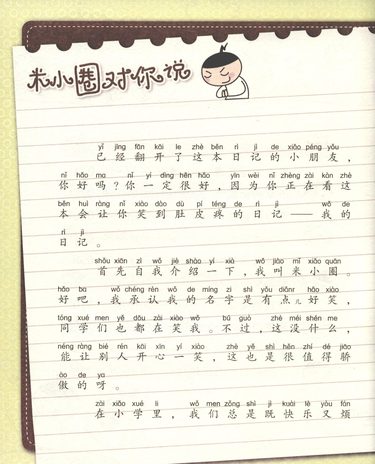 米小圈对你说
yǐ jīng fān kāi le zhè běn rì jì de xiǎo péng yǒu
已经翻开了这本日记的小朋友，
nǐ hǎo ma nǐ yí dìng hěn hǎo yīn wèi nǐ zhèng zài kàn zhè
你好吗？你一定很好，因为你正在看这
běn huì ràng nǐ xiào dào dù pí téng de rì jì wǒ de
本会让你笑到肚皮疼的日记——我的
rì jì
日记。
shǒu xiān zì wǒ jiè shào yí xià wǒ jiào mǐ xiǎo quān
首先自我介绍一下，我叫米小圈。
hǎo ba wǒ chéng rèn wǒ de míng zì shì yǒu diǎnr hǎo xiào
好吧，我承认我的名字是有点儿好笑，
tóng xué men yě dōu zài xiào wǒ bú guò zhè méi shén me
同学们也都在笑我。不过，这没什么，
néng ràng bié rén kāi xīn yí xiào zhè yě shì hěn zhí dé jiāo
能让别人开心一笑，这也是很值得骄
ào de ya
傲的呀。
zài xiǎo xué lǐ wǒ men zǒng shì jì kuài lè yòu fán
在小学里，我们总是既快乐又烦